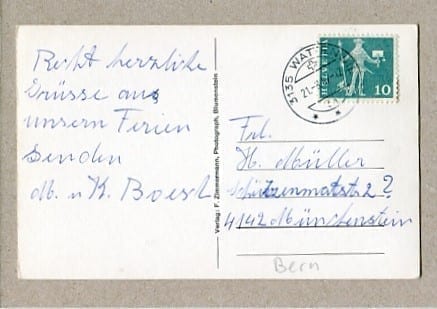 Recht herzliche
Grüsse aus
unseren Ferien
senden
M. u K. Boesch
Verlag: F. Zimmermann, Photograph, Blumenstein
3135 WATT
HELVETIA
10
Frl.
H. Müller
Schützenmatstr. 2 ?
4142 Münchenstein
Bern